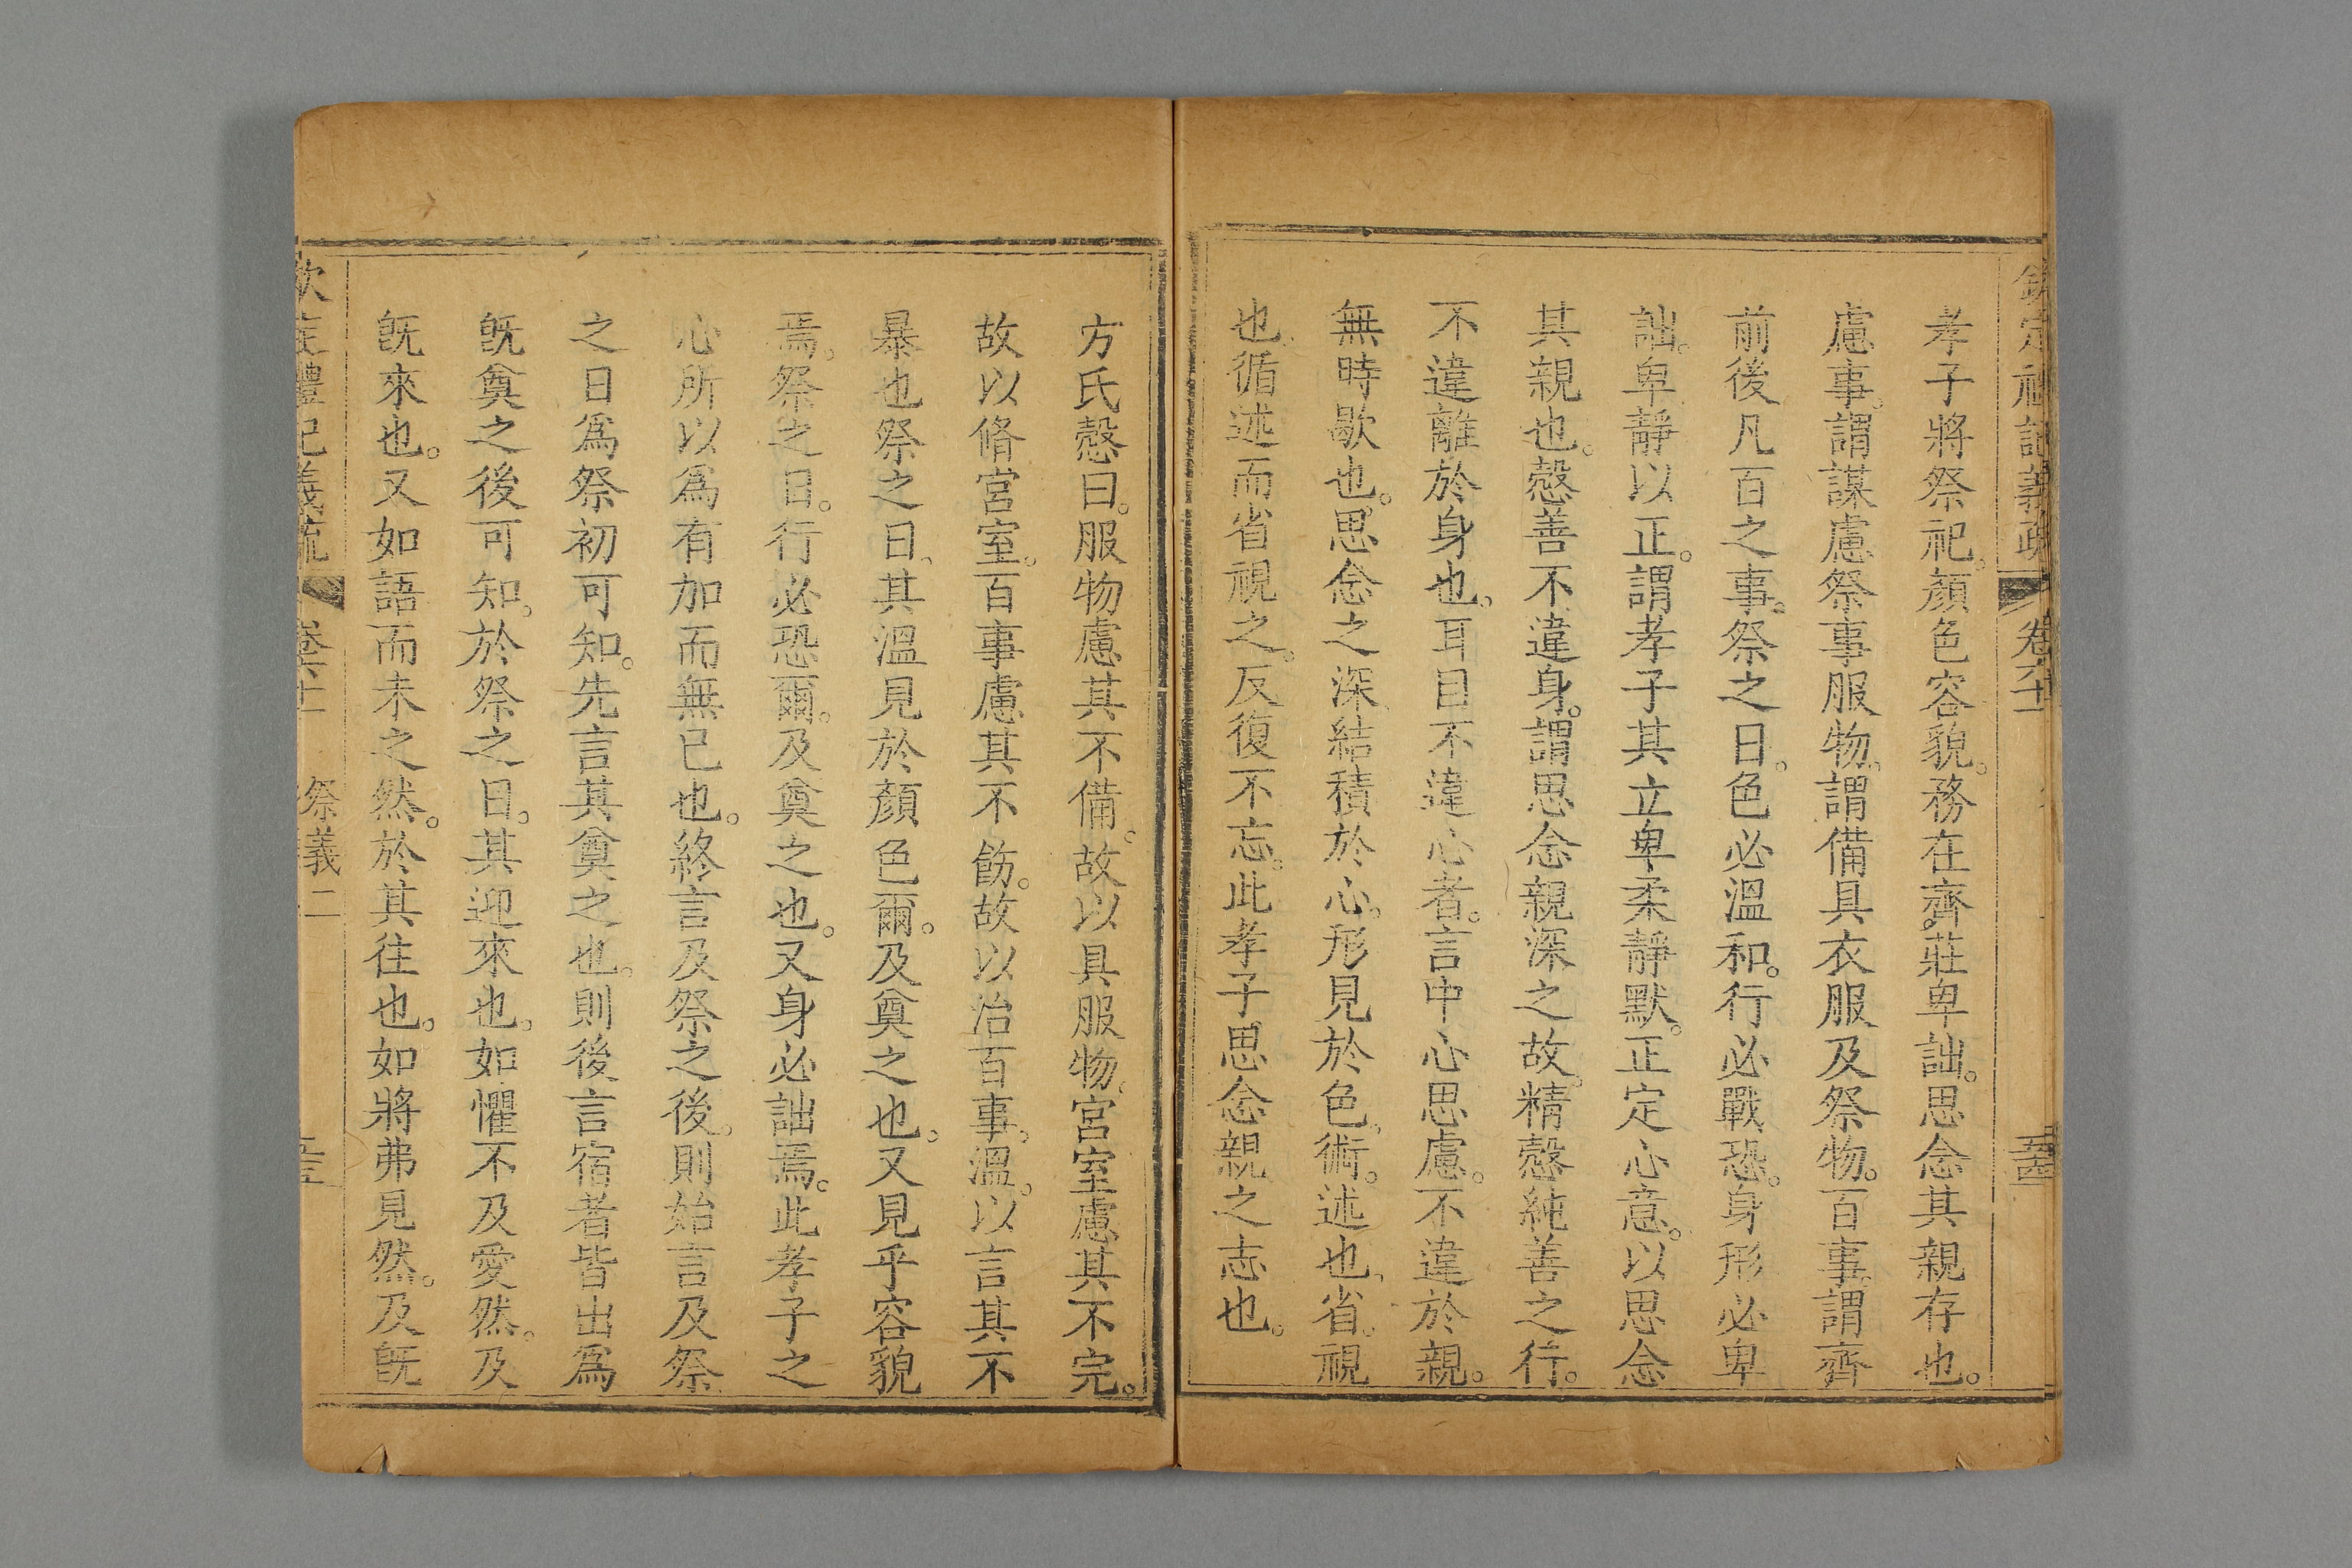 欽定禮記義疏 卷六十一
孝子將祭祀。顏色容貌。務在齊莊卑詘。思念其親存也。
慮事。謂謀慮祭事服物。謂備具衣服及祭物。百事。謂齊
前後凡百之事。祭之日。色必溫和。行必戰恐。身形必卑
詘。卑靜以正。謂孝子其立卑柔靜默。正定心意。以思念
其親也。慤善不違身。謂思念親深之故。精慤純善之行。
不違離於身也。耳目不違心者。言中心思慮。不違於親。
無時歇也。思念之深。結積於心。形見於色。術。述也。省。視
也。循述而省視之。反復不忘。此孝子思念親之志也。
方氏慤曰。服物慮其不備。故以具服物。宮室慮其不完。
故以脩宮室。百事慮其不飭。故以治百事。溫。以言其不
暴也祭之日。其溫見於顏色爾。及奠之也。又見乎容貌
焉。祭之日。行必恐爾。及奠之也。又身必詘焉。此孝子之
心所以為有加而無已也。終言及祭之後。則始言及祭
之日為祭初可知。先言其奠之也。則後言宿者皆出為
旣奠之後可知。於祭之日。其迎來也。如懼不及愛然。及
旣來也。又如語而未之然。於其往也。如將弗見然。及旣
欽定禮記義疏 卷六十一 祭義二